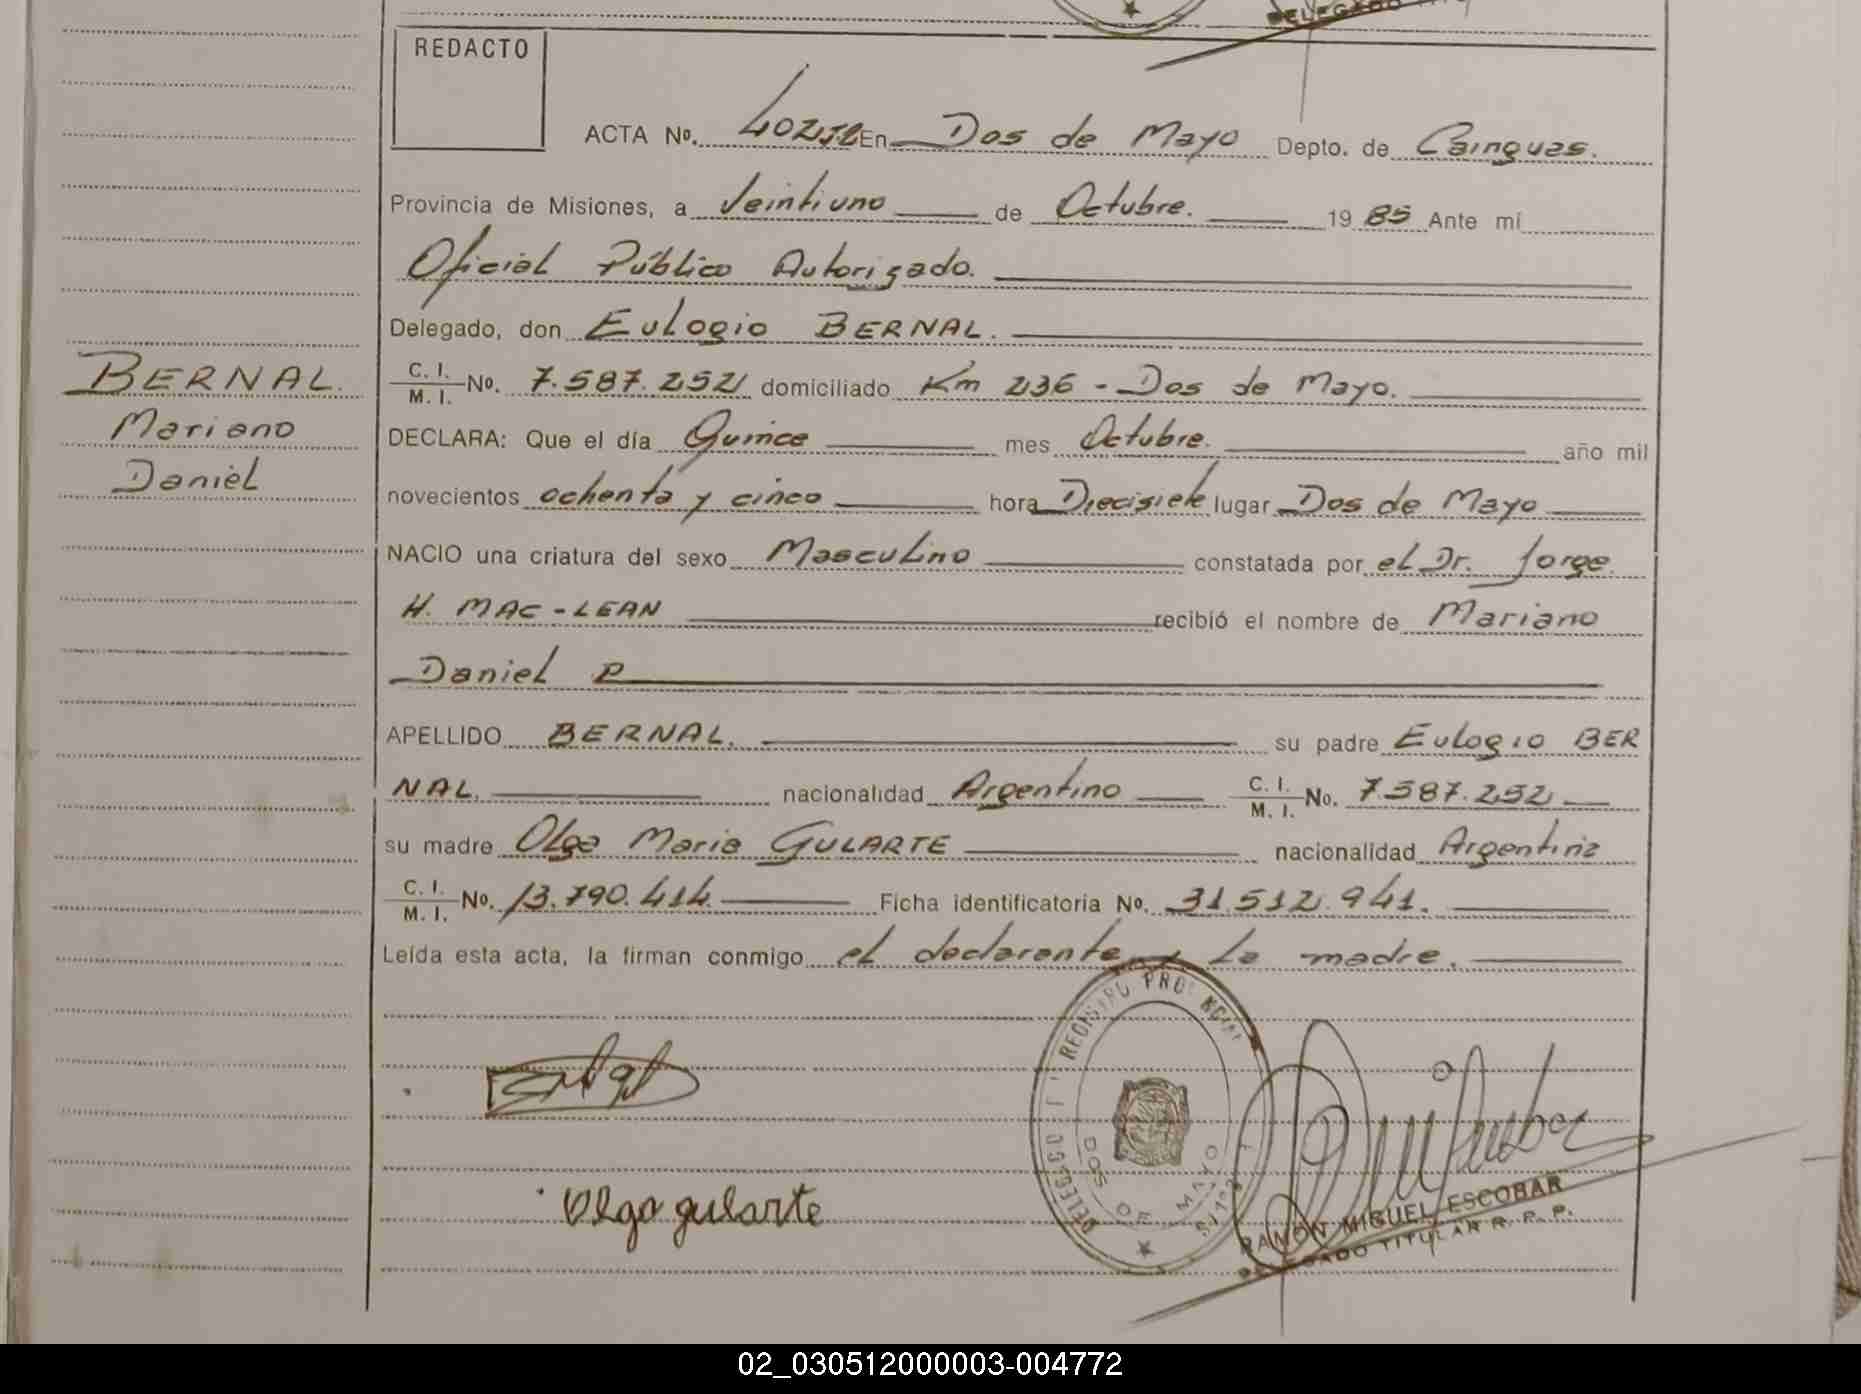 DELEGADO
REDACTO
ACTA Nº. 402 En Dos de Mayo Depto. de Cainguas.
Provincia de Misiones, a Veintiuno de Octubre. 19 85 Ante mí
Oficial Público Autorizado.
Delegado, don Eulogio BERNAL.
C. I.
M. I. No. 7.587.252 domiciliado Km 236 - Dos de Mayo.
DECLARA: Que el día Quince mes Octubre. año mil
novecientos ochenta y cinco hora Diecisiete lugar Dos de Mayo
NACIO una criatura del sexo Masculino constatada por el Dr. Jorge
H. MAC-LEAN recibió el nombre de Mariano
Daniel
APELLIDO BERNAL. su padre Eulogio BER
NAL. nacionalidad Argentino C. I.
M. I. No. 7.587.252
su madre Olga Maria GULARTE nacionalidad Argentina
C. I.
M. I. No. 13.790.414 Ficha identificatoria No. 31.512.941.
Leída esta acta, la firman conmigo el declarante y la madre.
BERNAL.
Mariano
Daniel
REGISTRO PROVINCIAL
DOS DE MAYO
Olga gularte
RAMON MIGUEL ESCOBAR
DELEGADO TITULAR R. P. P.
02_030512000003-004772